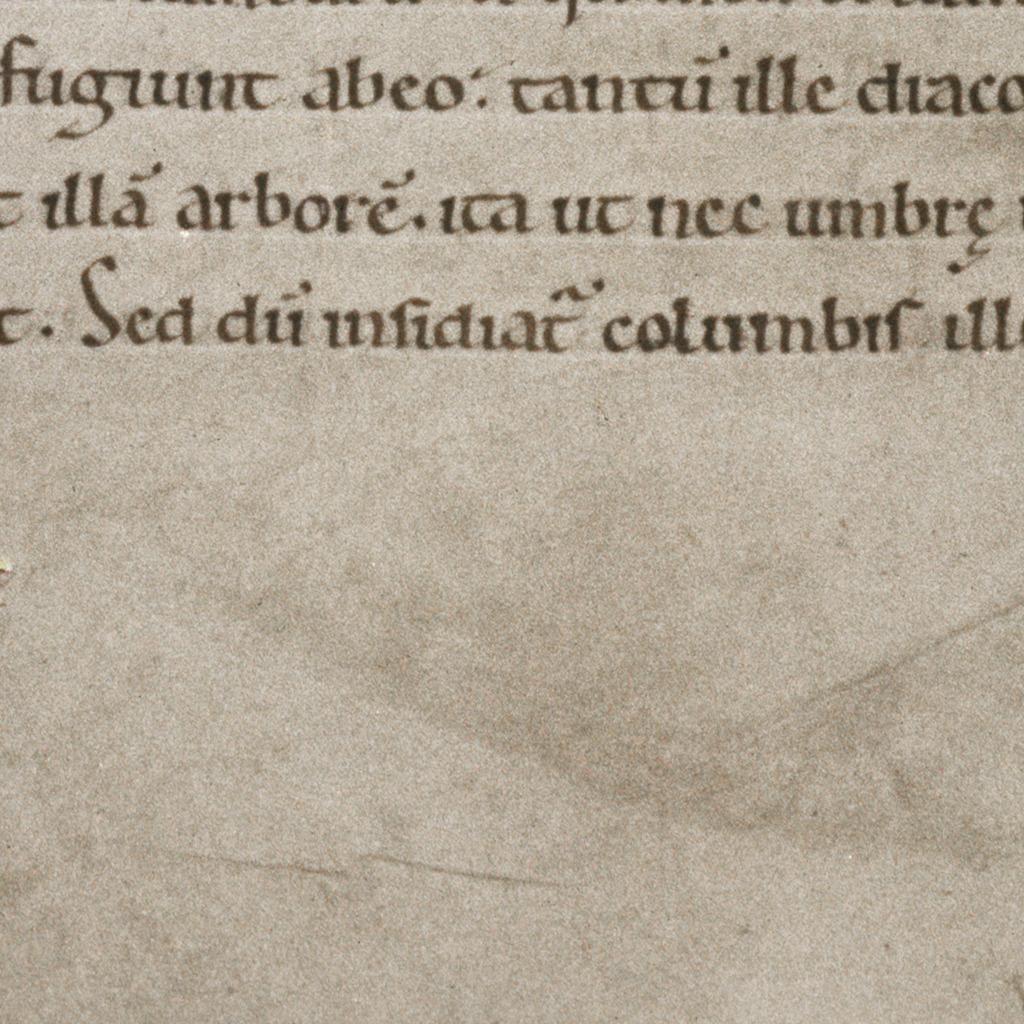 fugiunt abeo: tantū ille diaco
t illā arborē. ita ut nec umbrę
t. Sed dū insidiat᷑ columbis ill